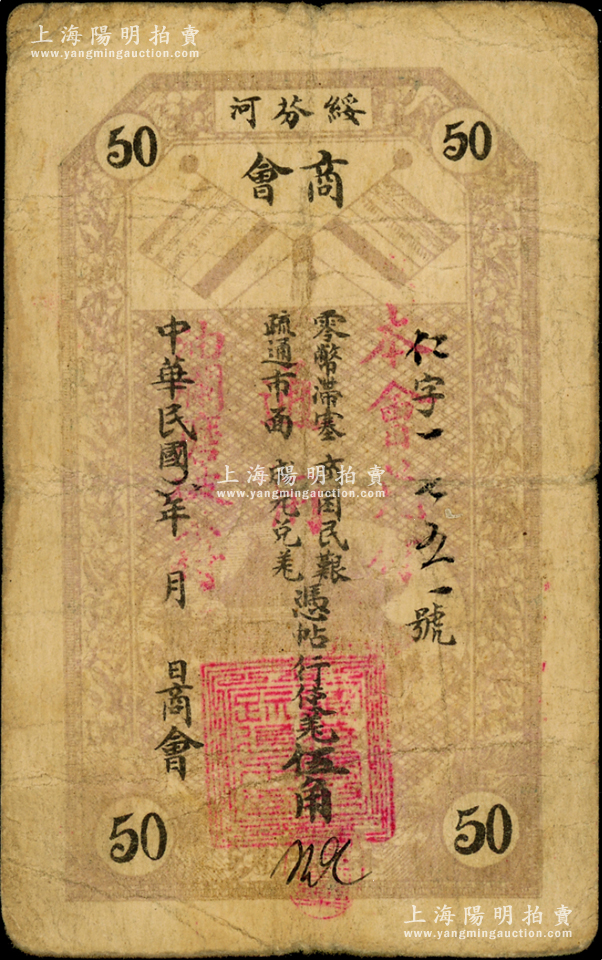 上海陽明拍賣
www.yangmingauction.com
綏芬河
商會
50
50
仁字一七五一號
零幣滯塞市困民艱
疏通市面 元兌羌
憑帖行使羌伍角
中華民國 年 月 日商會
本會
上海陽明拍賣
www.yangmingauction.com
50
50
上海陽明拍賣
www.yangmingauction.com